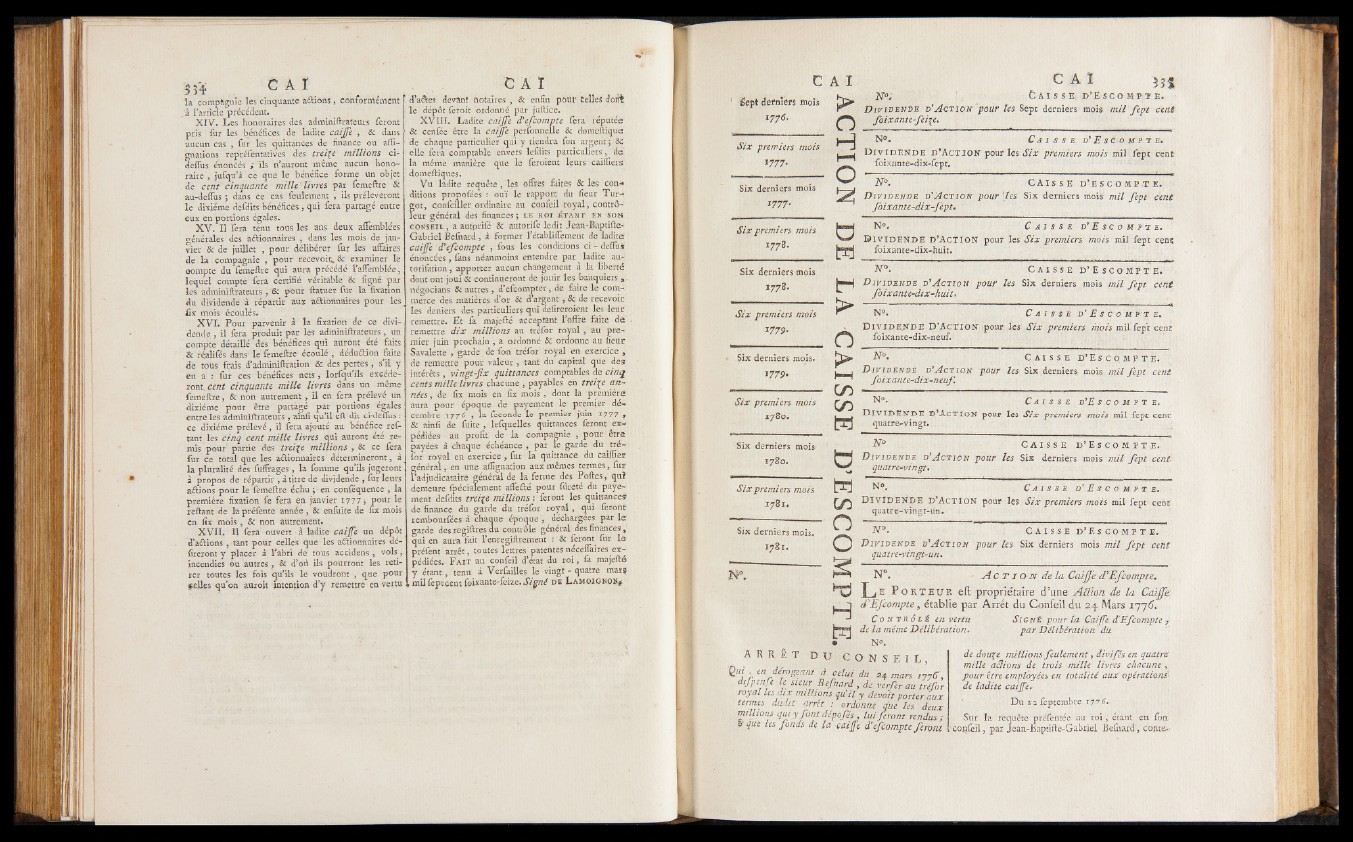 334 CAI CAI
la compagnie les cinquante actions, conformément
à l'article précédent.
XIV. Les honoraires des administrateurs seront
pris sur les bénéfices de ladite caisse , & dans
aucun cas , sur les quittances de finance ou assi-
gnations représentatives des treize millions ci-
dessus énoncés ; ils n'auront même aucun hono-
raire , jusqu'à ce que le bénéfice forme un objet
de cent cinquante mille livres par semestre &
au-dessus ; dans ce cas seulement , ils prélèveront
le dixième desdits bénéfices, qui sera partagé entre
eux en portions égales.
XV. Il sera tenu tous les ans deux assemblées
générales des actionnaires , dans les mois de jan-
vier & de juillet , pour délibérer sur les affaires
de la compagnie , pour recevoir, & examiner le
compte du semestre qui aura précédé l'assemblée,
lequel compte sera certifié véritable & signé par
les administrateurs , & pour statuer sur la fixation
du dividende à répartir aux actionnaires pour les
six mois écoulés.
XVI. Pour parvenir à la fixation de ce divi-
dende , il sera produit par les administrateurs , un
compte détaillé des bénéfices qui auront été faits
& réalisés dans le semestre écoulé , déduction faite
de tous frais d'administration & des pertes , s'il y
en a : sur ces bénéfices nets , lorsqu'ils excéde-
ront cent cinquante mille livres dans un même
semestre , & non autrement , il en sera prélevé un
dixième pour être partagé par portions égales
entre les administrateurs , ainsi qu'il est dit ci-dessus :
ce dixième prélevé , il sera ajouté au bénéfice res-
tant les cinq cent mille livres qui auront été re-
mis pour partie des treize millions , & ce sera
sur ce total que les actionnaires détermineront , à
la pluralité des suffrages , la somme qu'ils jugeront
à propos de répartir , à titre de dividende , sur leurs
actions pour le semestre échu ; en conséquence , la
première fixation se fera en janvier 1777 ; pour le
restant de la présente année , & ensuite de six mois
en six mois , & non autrement.
XVII. Il sera ouvert à ladite caisse un dépôt
d'actions , tant pour celles que les actionnaires dé-
sireront y placer à l'abri de tous accidens , vols ,
incendies ou autres , & d'où ils pourront les reti-
rer toutes les fois qu'ils le voudront , que pour
celles qu'on auroit intention d'y remettre en vertu
d'actes devant notaires , & enfin pour telles dont
le dépôt seroit ordonné par justice.
XVIII. Ladite caisse d'escompte sera réputée
& censée être la caisse personnelle & domestique
de chaque particulier qui y tiendra son argent ; &
elle sera comptable envers lesdits particuliers , de
la même manière que le seroient leurs caissiers
domestiques.
Vu ladite requête , les offres faites & les con-
ditions proposées : ouï le rapport du sieur Tur-
got, conseiller ordinaire au conseil royal, contrô-
leur général des finances ; LE ROI ÉTANT EN SON
CONSEIL , a autorisé & autorise ledit Jean-Baptiste-
Gabriel Besnard , à former l'établissement de ladite
caisse d'escompte , sous les conditions ci - dessus
énoncées , sans néanmoins entendre par ladite au-
torisation , apporter aucun changement à la liberté
dont ont joui & continueront de jouir les banquiers ,
négocians & autres , d'escompter , de faire le com-
merce des matières d'or & d'argent , & de recevoir
les deniers des particuliers qui desireroient les leur
remettre. Et sa majesté acceptant l'offre faite de
remettre dix millions au trésor royal , au pre-
mier juin prochain , a ordonné & ordonne au sieur
Savalette , garde de son trésor royal en exercice ,
de remettre pour valeur , tant du capital que des
intérêts , vingt-six quittances comptables de cinq
cents mille livres chacune , payables en treize an-
nées , de six mois en six mois , dont la première
aura pour époque de payement le premier dé-
cembre 1776 , la seconde le premier juin 1777 ,
& ainsi de suite , lesquelles quittances seront ex-
pédiées au profit de la compagnie , pour être
payées à chaque échéance , par le garde du tré-
sor royal en exercice , sur la quittance du caissier
général , en une assignation aux mêmes termes, sur
l'adjudicataire général de la ferme des Postes, qui
demeure spécialement affecté pour sûreté du paye-
ment desdits treize millions : seront les quittances
de finance du garde du trésor royal , qui seront
remboursées à chaque époque , déchargées par le
garde des registres du contrôle général des finances,
qui en aura fait l'enregistrement : & seront sur le
présent arrêt , toutes lettres patentes nécessaires ex-
pédiées. FAIT au conseil d'état du roi, sa majesté
y étant , tenu à Versailles le vingt - quatre mars
mil sept cent soixante-seize. Signé DE LAMOIGNON.
CAI CAI 335
ACTION DE LA CAISSE D'ESCOMPTE.
Sept derniers mois
1776.
N°. CAISSE D'ESCOMPTE.
DIVIDENDE D'ACTION pour les Sept derniers mois mil sept cent
soixante-seize.
Six premiers mois
1777.
N°. CAISSE D'ESCOMPTE.
DIVIDENDE D'ACTION pour les Six premiers mois mil sept cent
soixante-dix-sept.
Six derniers mois
1777.
N°. CAISSE D'ESCOMPTE.
DIVIDENDE D'ACTION pour les Six derniers mois mil sept cent
soixante-dix-sept.
Six premiers mois
1778.
N°. CAISSE D'ESCOMPTE.
DIVIDENDE D'ACTION pour les Six premiers mois mil sept cent
soixante-dix-huit.
Six derniers mois
1778.
N°. CAISSE D'ESCOMPTE.
DIVIDENDE D'ACTION pour les Six derniers mois mil sept cent
soixante-dix-huit.
Six premiers mois
1779.
N°. CAISSE D'ESCOMPTE.
DIVIDENDE D'ACTION pour les Six premiers mois mil sept cent
soixante-dix-neuf.
Six derniers mois.
1779.
N°. CAISSE D'ESCOMPTE.
DIVIDENDE D'ACTION pour les Six derniers mois mil sept cent
soixante-dix-neuf.
Six premiers mois
1780.
N°. CAISSE D'ESCOMPTE.
DIVIDENDE D'ACTION pour les Six premiers mois mil sept cent
quatre-vingt.
Six derniers mois
1780.
N° CAISSE D'ESCOMPTE.
DIVIDENDE D'ACTION pour les Six derniers mois mil sept cent
quatre-vingt.
Six premiers mois
1781.
N°. CAISSE D'ESCOMPTE.
DIVIDENDE D'ACTION pour les Six premiers mois mil sept cent
quatre-vingt-un.
Six derniers mois.
1781.
N°. CAISSE D'ESCOMPTE.
DIVIDENDE D'ACTION pour les Six derniers mois mil sept cent
quatre-vingt-un.
N°.
N°. ACTION de la Caisse d'Escompte.
LE PORTEUR est propriétaire d'une Action de la Caisse
d'Escompte , établie par Arrêt du Conseil du 24 Mars 1776.
CONTRÔLÉ en vertu SIGNÉ pour la Caisse d'Escompte ,
de la même Délibération. par Délibération du
N°.
ARRÊT DU CONSEIL,
Qui , en dérogeant à celui du 24 mars 1776,
dispense le sieur Besnard , de verser au trésor
royal les dix millions qu'il y devoit porter aux
termes dudit arrêt : ordonne que les deux
millions qui y sont déposés , lui seront rendus ;
& que les fonds de la caisse d'escompte seront
de douze millions seulement , divisés en quatre
mille actions de trois mille livres chacune ,
pour être employées en totalité aux opérations
de ladite caisse.
Du 22 septembre 1776.
Sur la requête présentée au roi , étant en son
conseil, par Jean-Baptiste-Gabriel Besnard, conte-